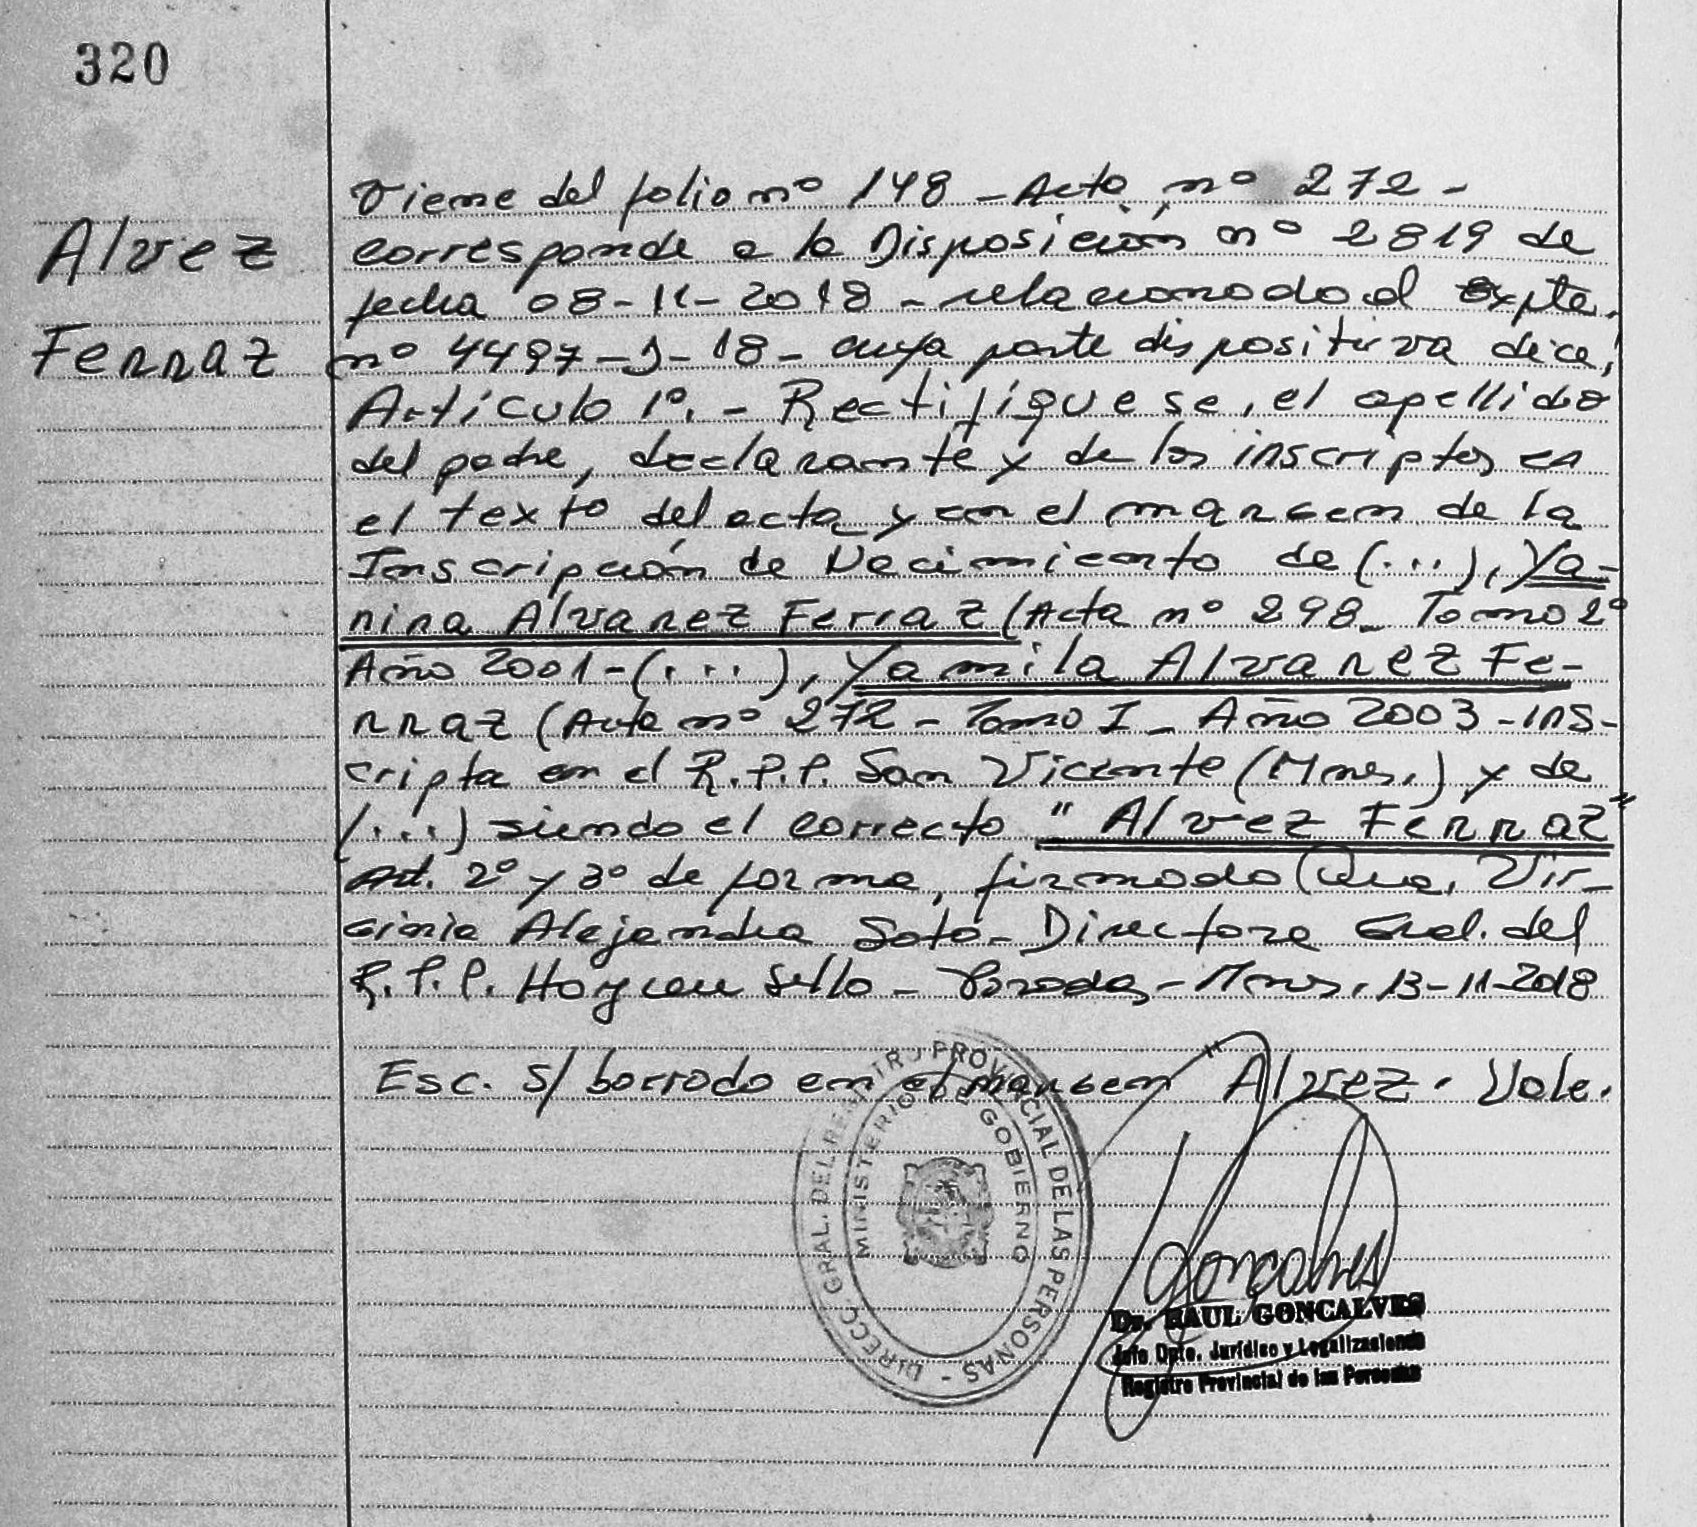 320
Alvez
Ferraz
Viene del folio nº 148 - Acta nº 272 -
corresponde a la Disposición nº 2819 de
fecha 08-11-2018 - relacionado al Expte.
nº 4497-J-18 - cuya parte dispositiva dice:
Artículo 1º. - Rectifíquese, el apellido
del padre, declarante y de los inscriptos en
el texto del acta y en el margen de la
Inscripción de Nacimiento de (...), Ya-
nina Alvarez Ferraz (Acta nº 298 - Tomo 2º
Año 2001 - (...), Yamila Alvarez Fe-
rraz (Acta nº 272 - Tomo I - Año 2003 - ins-
cripta en el R.P.P. San Vicente (Mnes.) y de
(...) siendo el correcto "Alvez Ferraz"
Art. 2º y 3º de forma, firmado Dra. Vir-
ginia Alejandra Soto - Directora Gral. del
R.P.P. Hay un Sello - Posadas - Mnes. 13-11-2018
Esc. s/ borrado en el margen Alvez. Vale.
DIRECC. GRAL. DEL REGISTRO PROVINCIAL DE LAS PERSONAS -
MINISTERIO DE GOBIERNO
Goncalves
Dr. RAUL GONCALVES
Jefe Dpto. Jurídico y Legalizaciones
Registro Provincial de las Personas